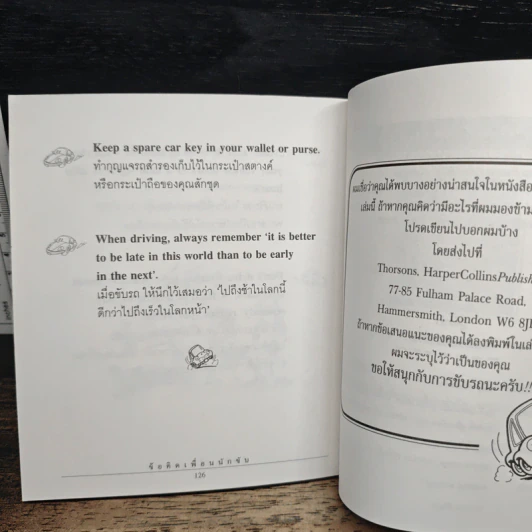 Keep a spare car key in your wallet or purse.
ทำกุญแจรถสำรองเก็บไว้ในกระเป๋าสตางค์
หรือกระเป๋าถือของคุณสักชุด
When driving, always remember 'it is better
to be late in this world than to be early
in the next'.
เมื่อขับรถ ให้นึกไว้เสมอว่า 'ไปถึงช้าในโลกนี้
ดีกว่าไปถึงเร็วในโลกหน้า'
ข้อคิดเพื่อนนักขับ
126
ผมเชื่อว่าคุณได้พบบางอย่างน่าสนใจในหนังสือ
เล่มนี้ ถ้าหากคุณคิดว่ามีอะไรที่ผมมองข้าม
โปรดเขียนไปบอกผมบ้าง
โดยส่งไปที่
Thorsons, HarperCollinsPublish
77-85 Fulham Palace Road,
Hammersmith, London W6 8J
ถ้าหากข้อเสนอแนะของคุณได้ลงพิมพ์ในเล่
ผมจะระบุไว้ว่าเป็นของคุณ
ขอให้สนุกกับการขับรถนะครับ!!